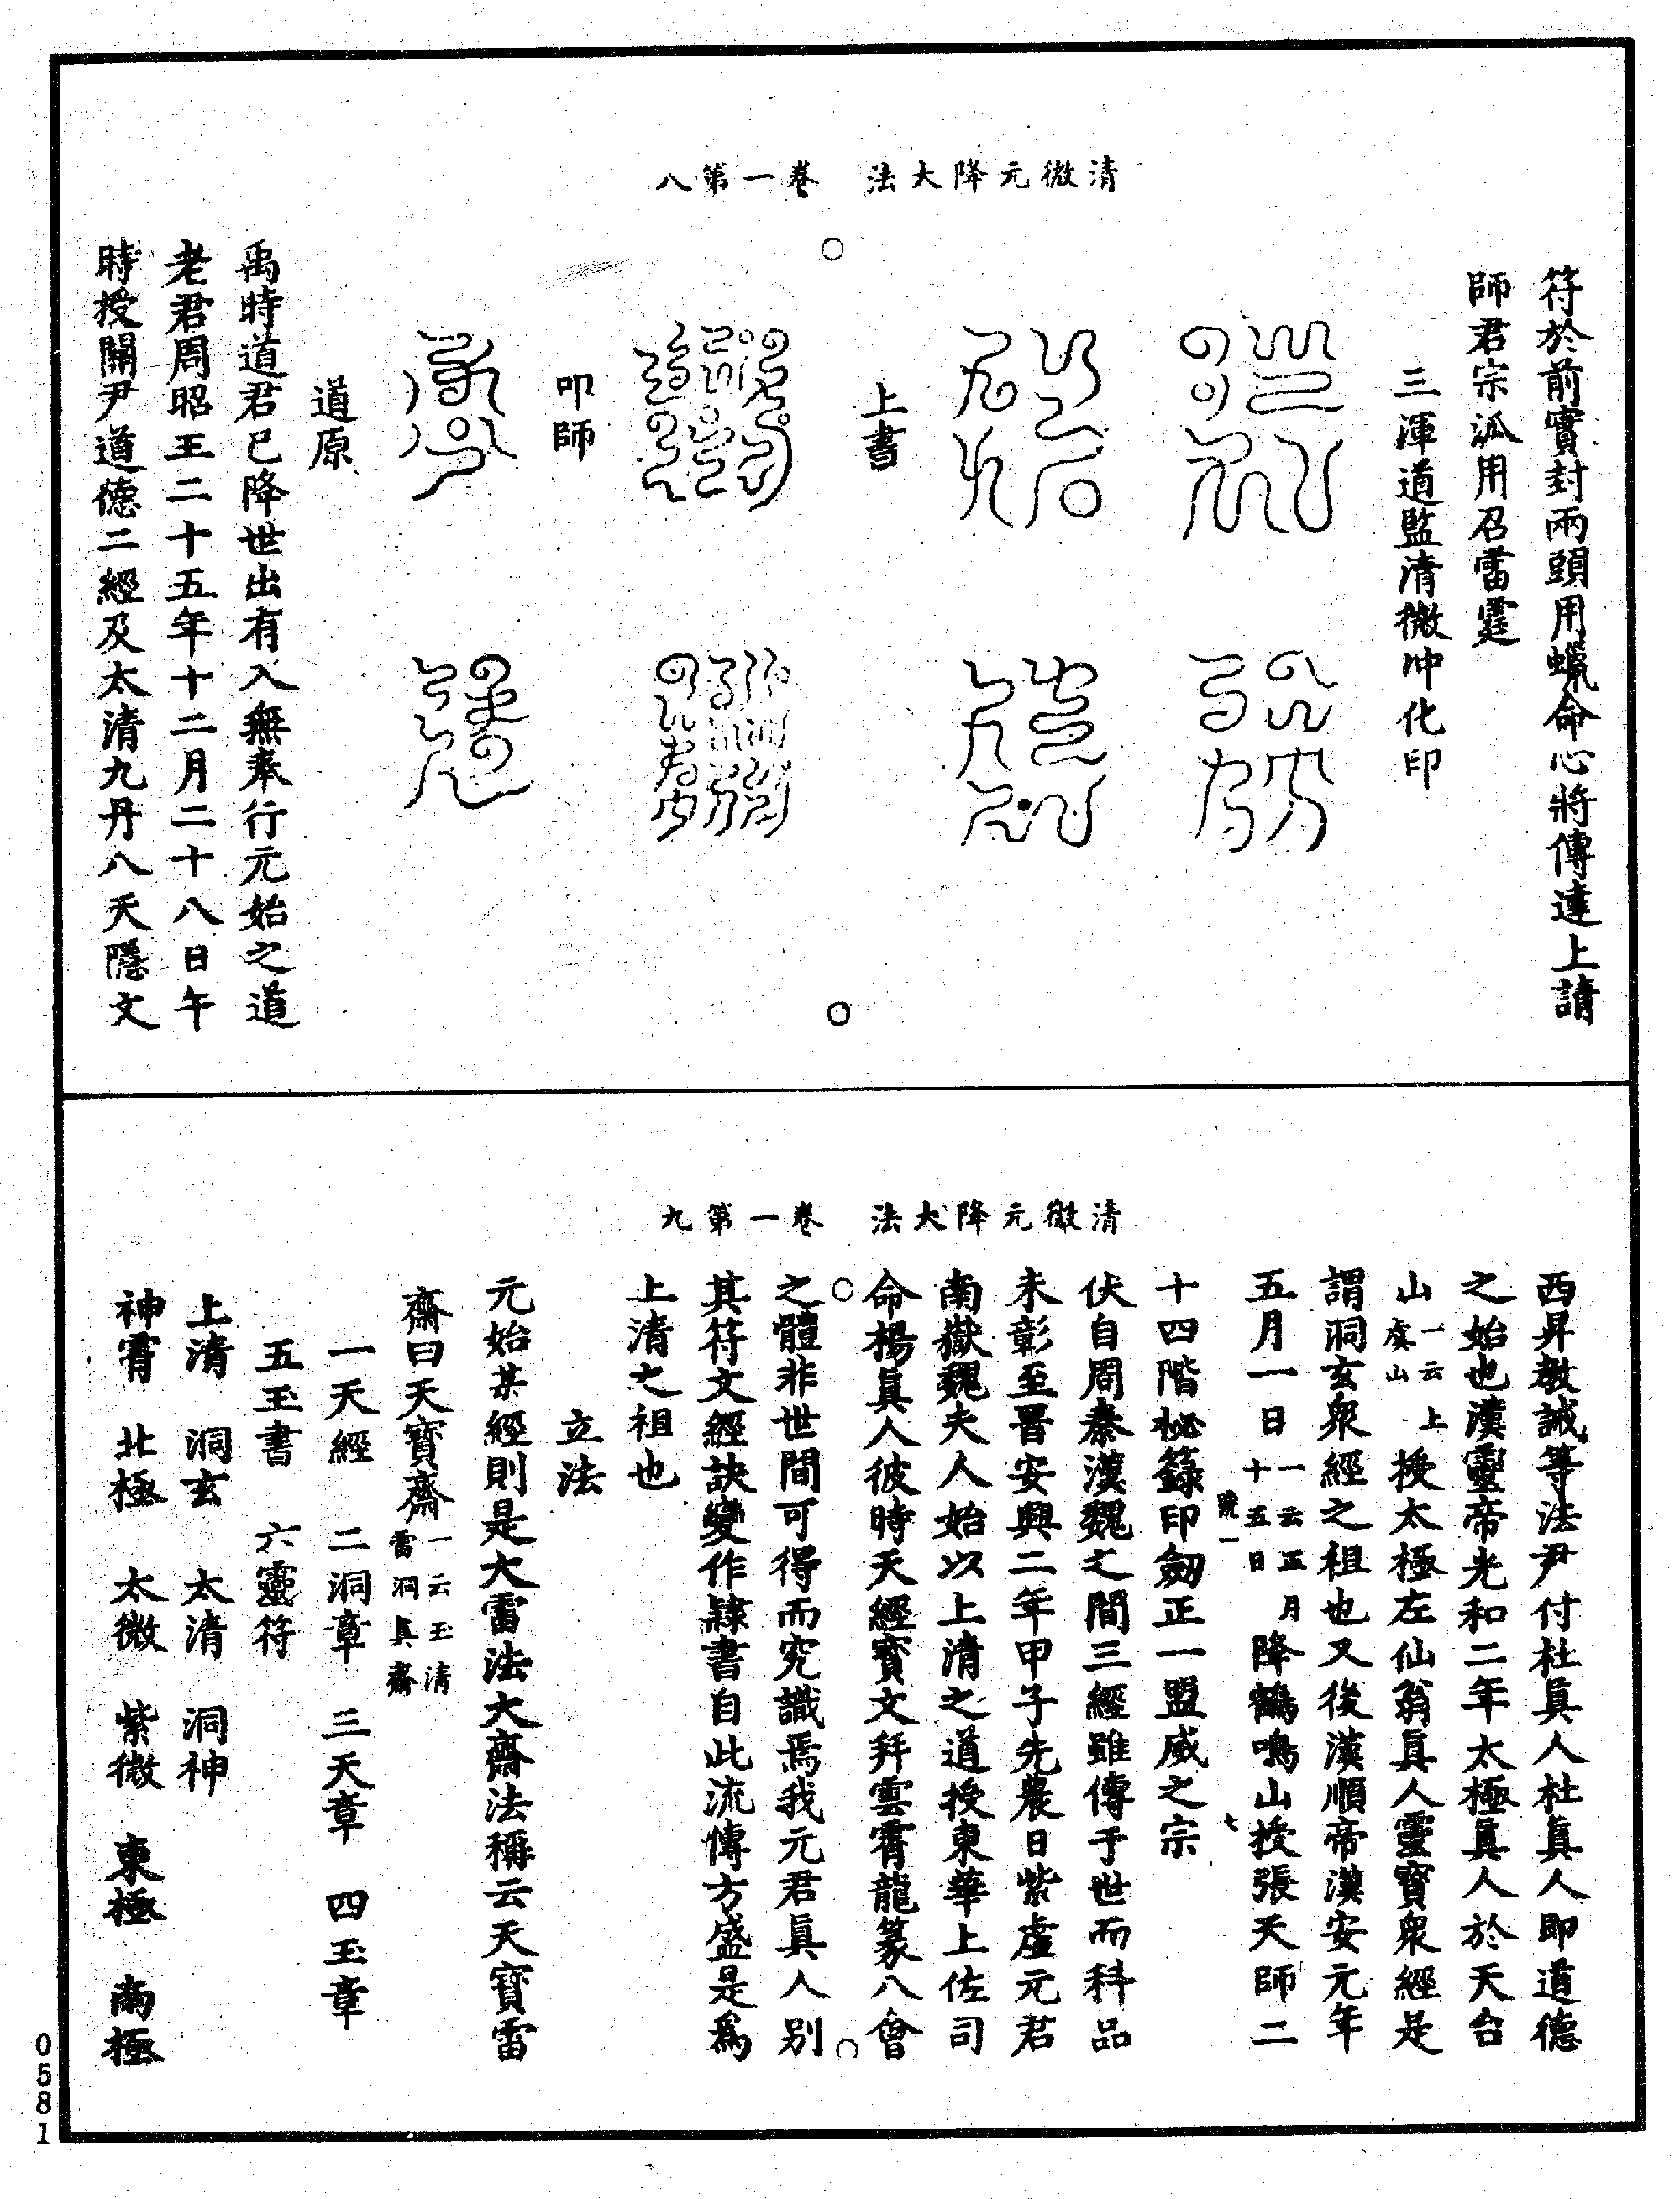 清微元降大法　卷一第八
符於前實封兩頭用蠟命心將傳達上請
師君宗泒用召雷霆
三渾道監清微冲化印
上書
叩師
道原
禹時道君已降世出有入無奉行元始之道
老君周昭王二十五年十二月二十八日午
時授關尹道德二經及太清九丹八天隱文
清微元降大法　卷一第九
西昇教誡等法尹付杜眞人杜眞人即道德
之始也漢靈帝光和二年太極眞人於天台
山一云上虞山授太極左仙翁眞人靈寶衆經是
謂洞玄衆經之祖也又後漢順帝漢安元年
五月一日一云正月十五日降鶴鳴山授張天師二
十四階祕籙印劒正一盟威之宗
伏自周秦漢魏之間三經雖傳于世而科品
未彰至晋安興二年甲子先農日紫虛元君
南嶽魏夫人始以上清之道授東華上佐司
命楊眞人彼時天經寶文幷雲霄龍篆八會
之體非世間可得而究識焉我元君眞人別
其符文經訣變作隸書自此流傳方盛是爲
上清之祖也
立法
元始某經則是大雷法大齋法稱云天寶雷
齋曰天寶齋一云玉清雷洞眞齋
一天經　二洞章　三天章　四玉章
五玉書　六靈符
上清　洞玄　太清　洞神
神霄　北極　太微　紫微　東極　南極
0581